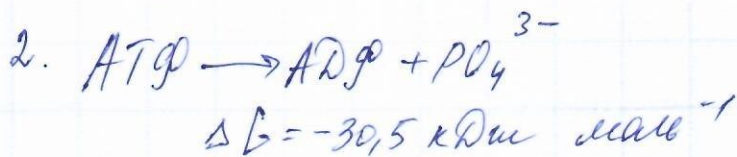 2. АТФ → АДФ + PO₄³⁻
ΔG = -30,5 кДж моль⁻¹